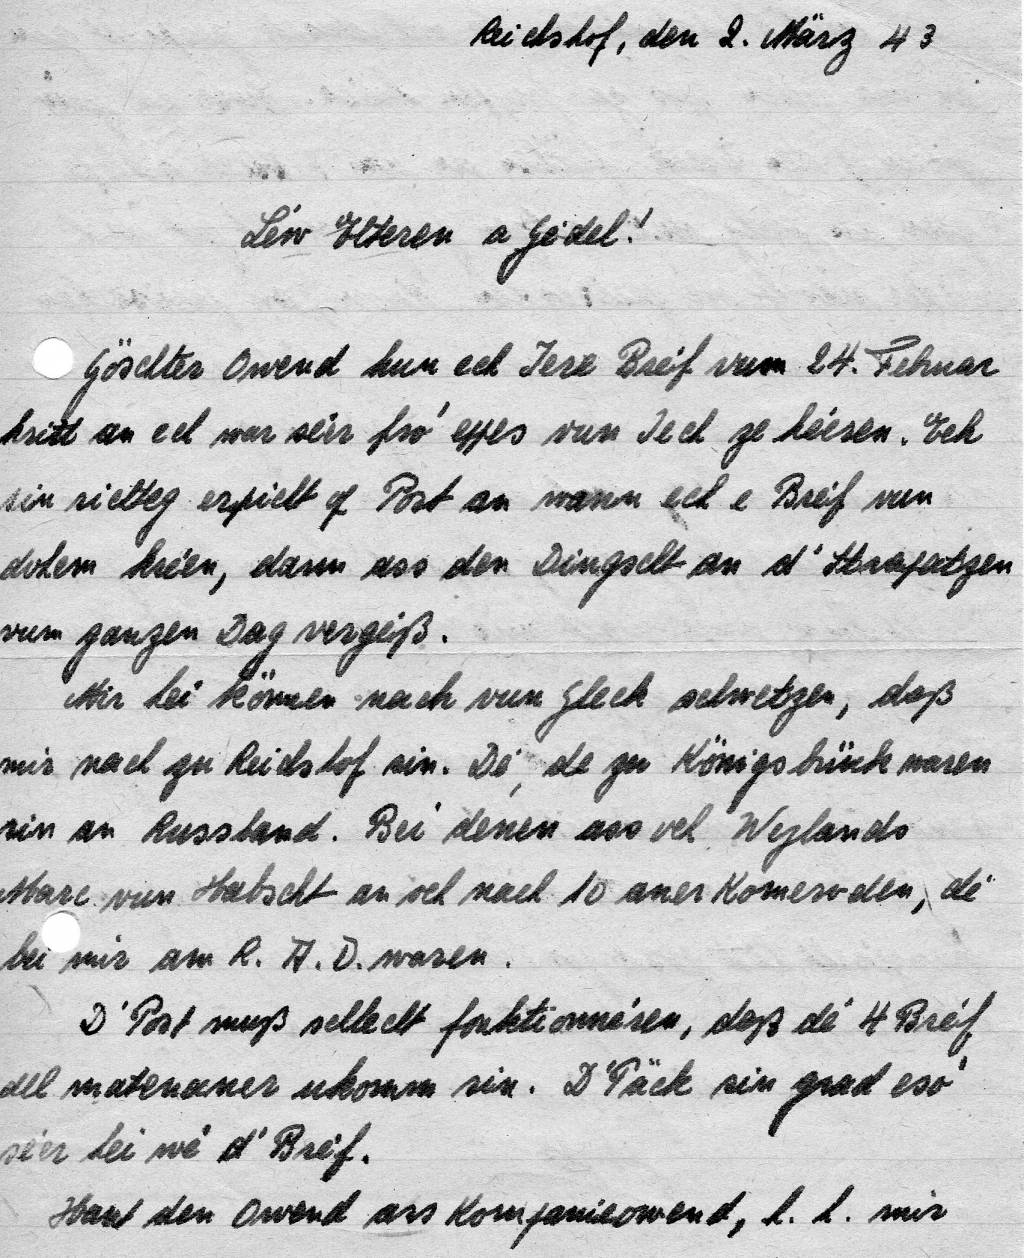 Reichshof, den 2. März 43
Léw Elteren a Gedel!
Göschter Owend hun ech Iere Bréif vum 24. Februar
kritt an ech war séier fró eppes vun Iech ze héieren. Ech
sin richteg erpicht op Post an wann ech e Bréif vun
dohem kréien, dann ass den Dingscht an d'Strapatzen
vum ganzen Dag vergeiß.
Mir hei können nach vun Gleck schwetzen, daß
mir nach zu Reichshof sin. Dé, de zu Königsbrück waren
sin an Russland. Bei denen ass och Weylands
Marc vun Habscht an och nach 10 aner Komeroden, dé
bei mir am R. A. D. waren.
D'Post muß schlecht fonktionnéren, daß dé 4 Bréif
all matenaner ukomm sin. D'Päck sin grad esó
séier hei wé d'Bréif.
Haut den Owend ass Kompanieowend, d. h. mir